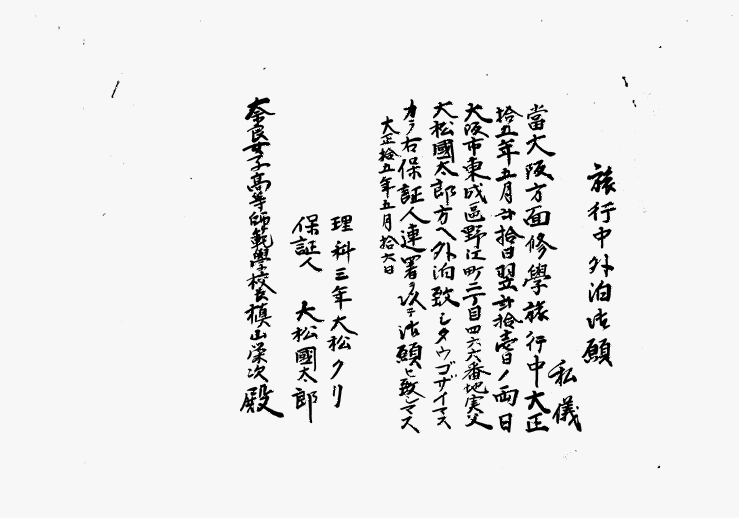 旅行中外泊御願
私儀
當大阪方面修學旅行中大正
拾五年五月廿拾日翌廿拾壱日ノ両日
大阪市東成區野江町二丁目四六六番地実父
大松國太郎方ヘ外泊致シタウゴザイマス
カラ右保証人連署ヲ以テ御願ヒ致シマス
大正拾五年五月拾六日
理科三年大松クリ
保証人 大松國太郎
奈良女子高等師範學校長槙山栄次殿